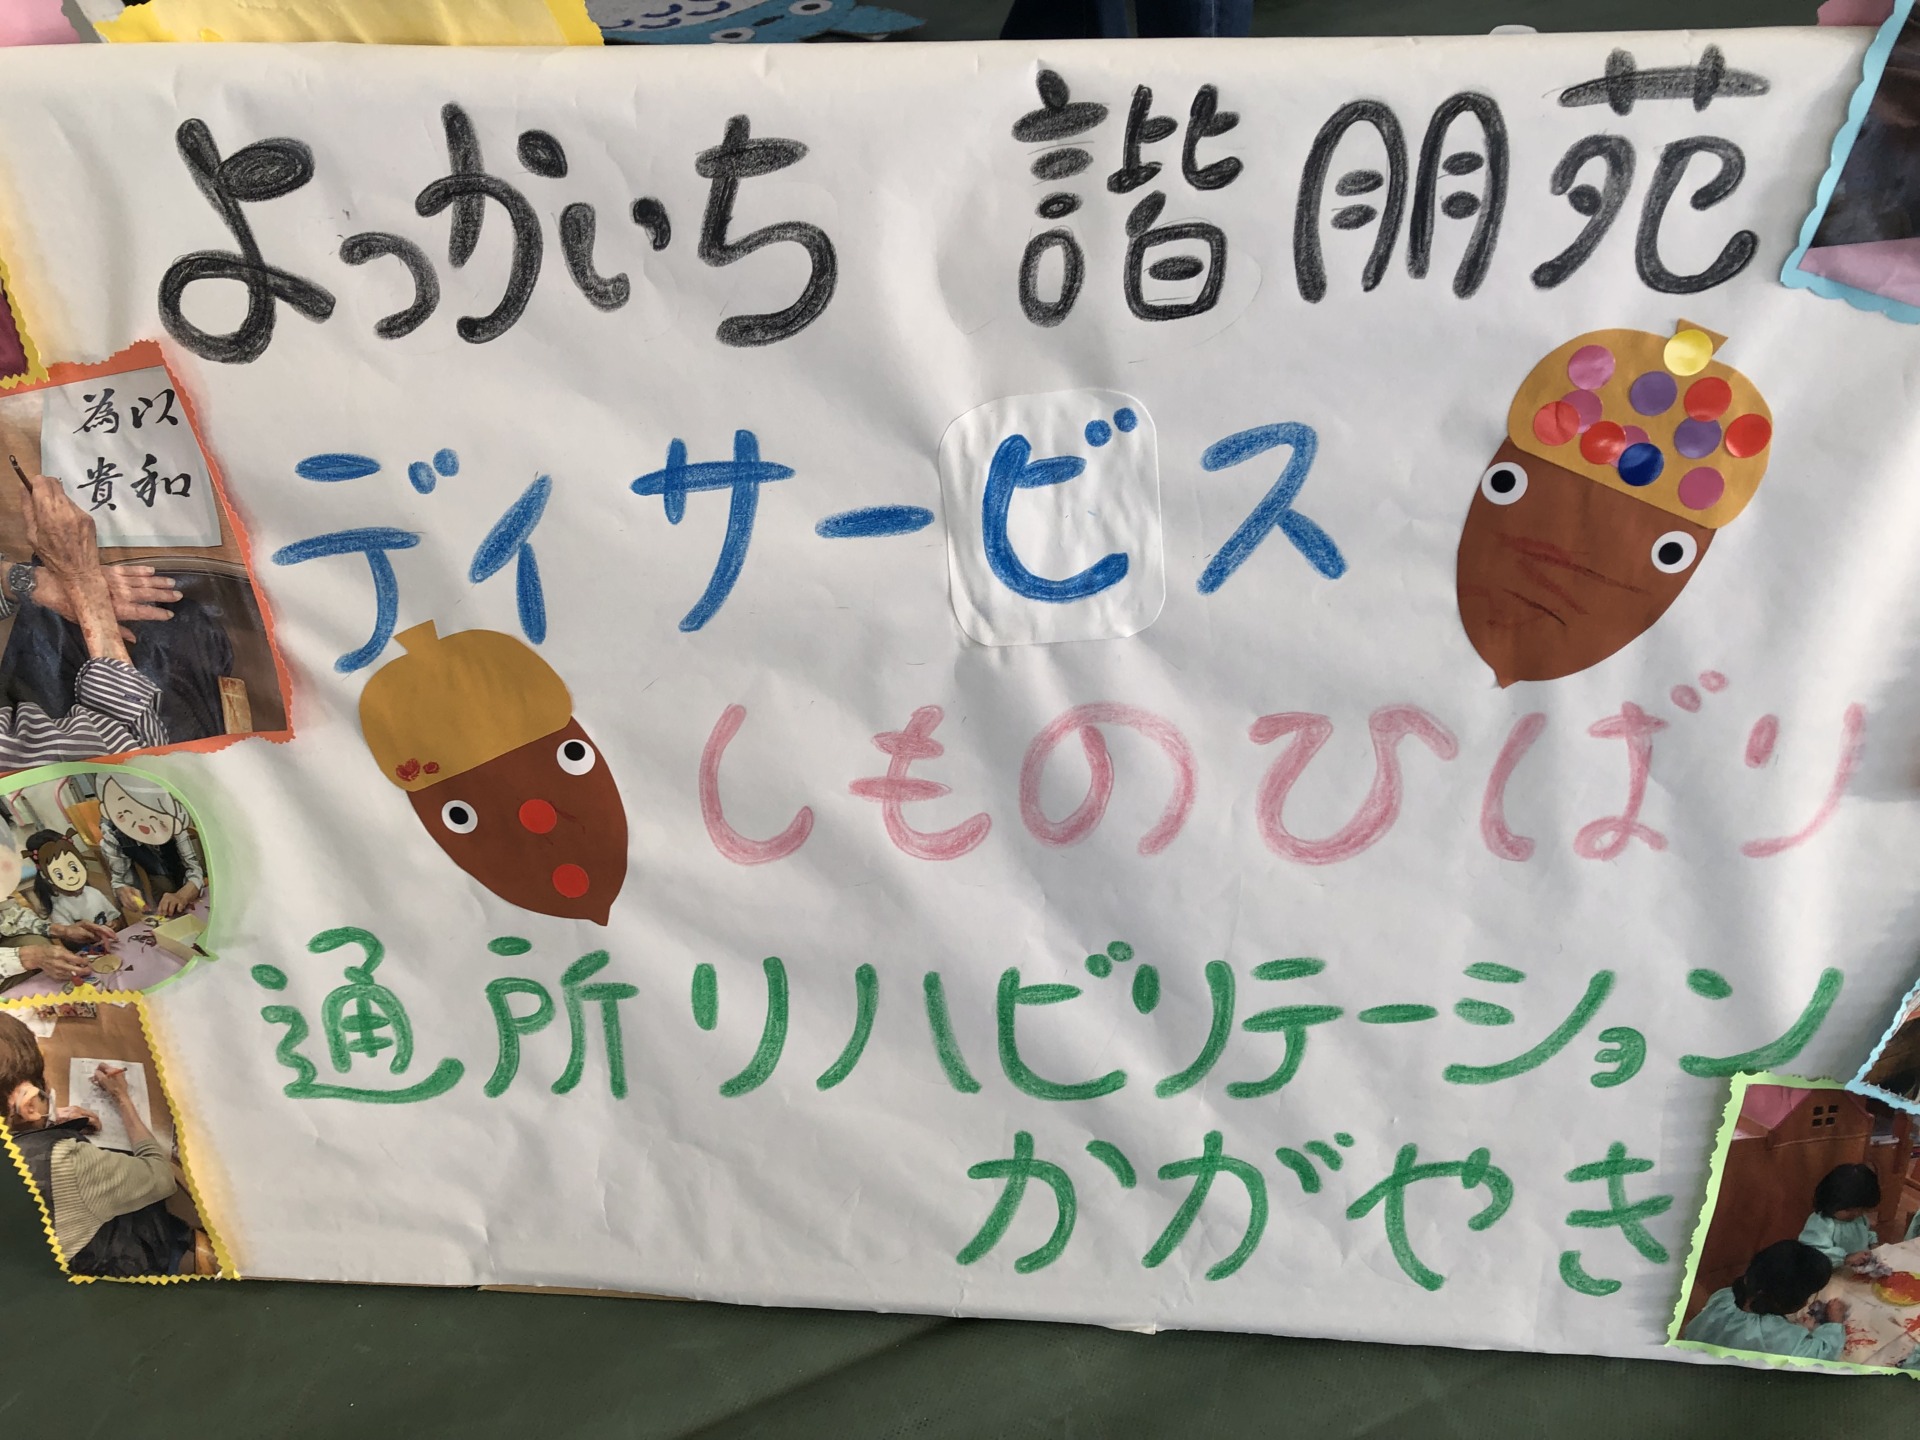 よっかいち 諧朋苑
為以
貴和
デイサービス
しものひばり
通所リハビリテーション
かがやき